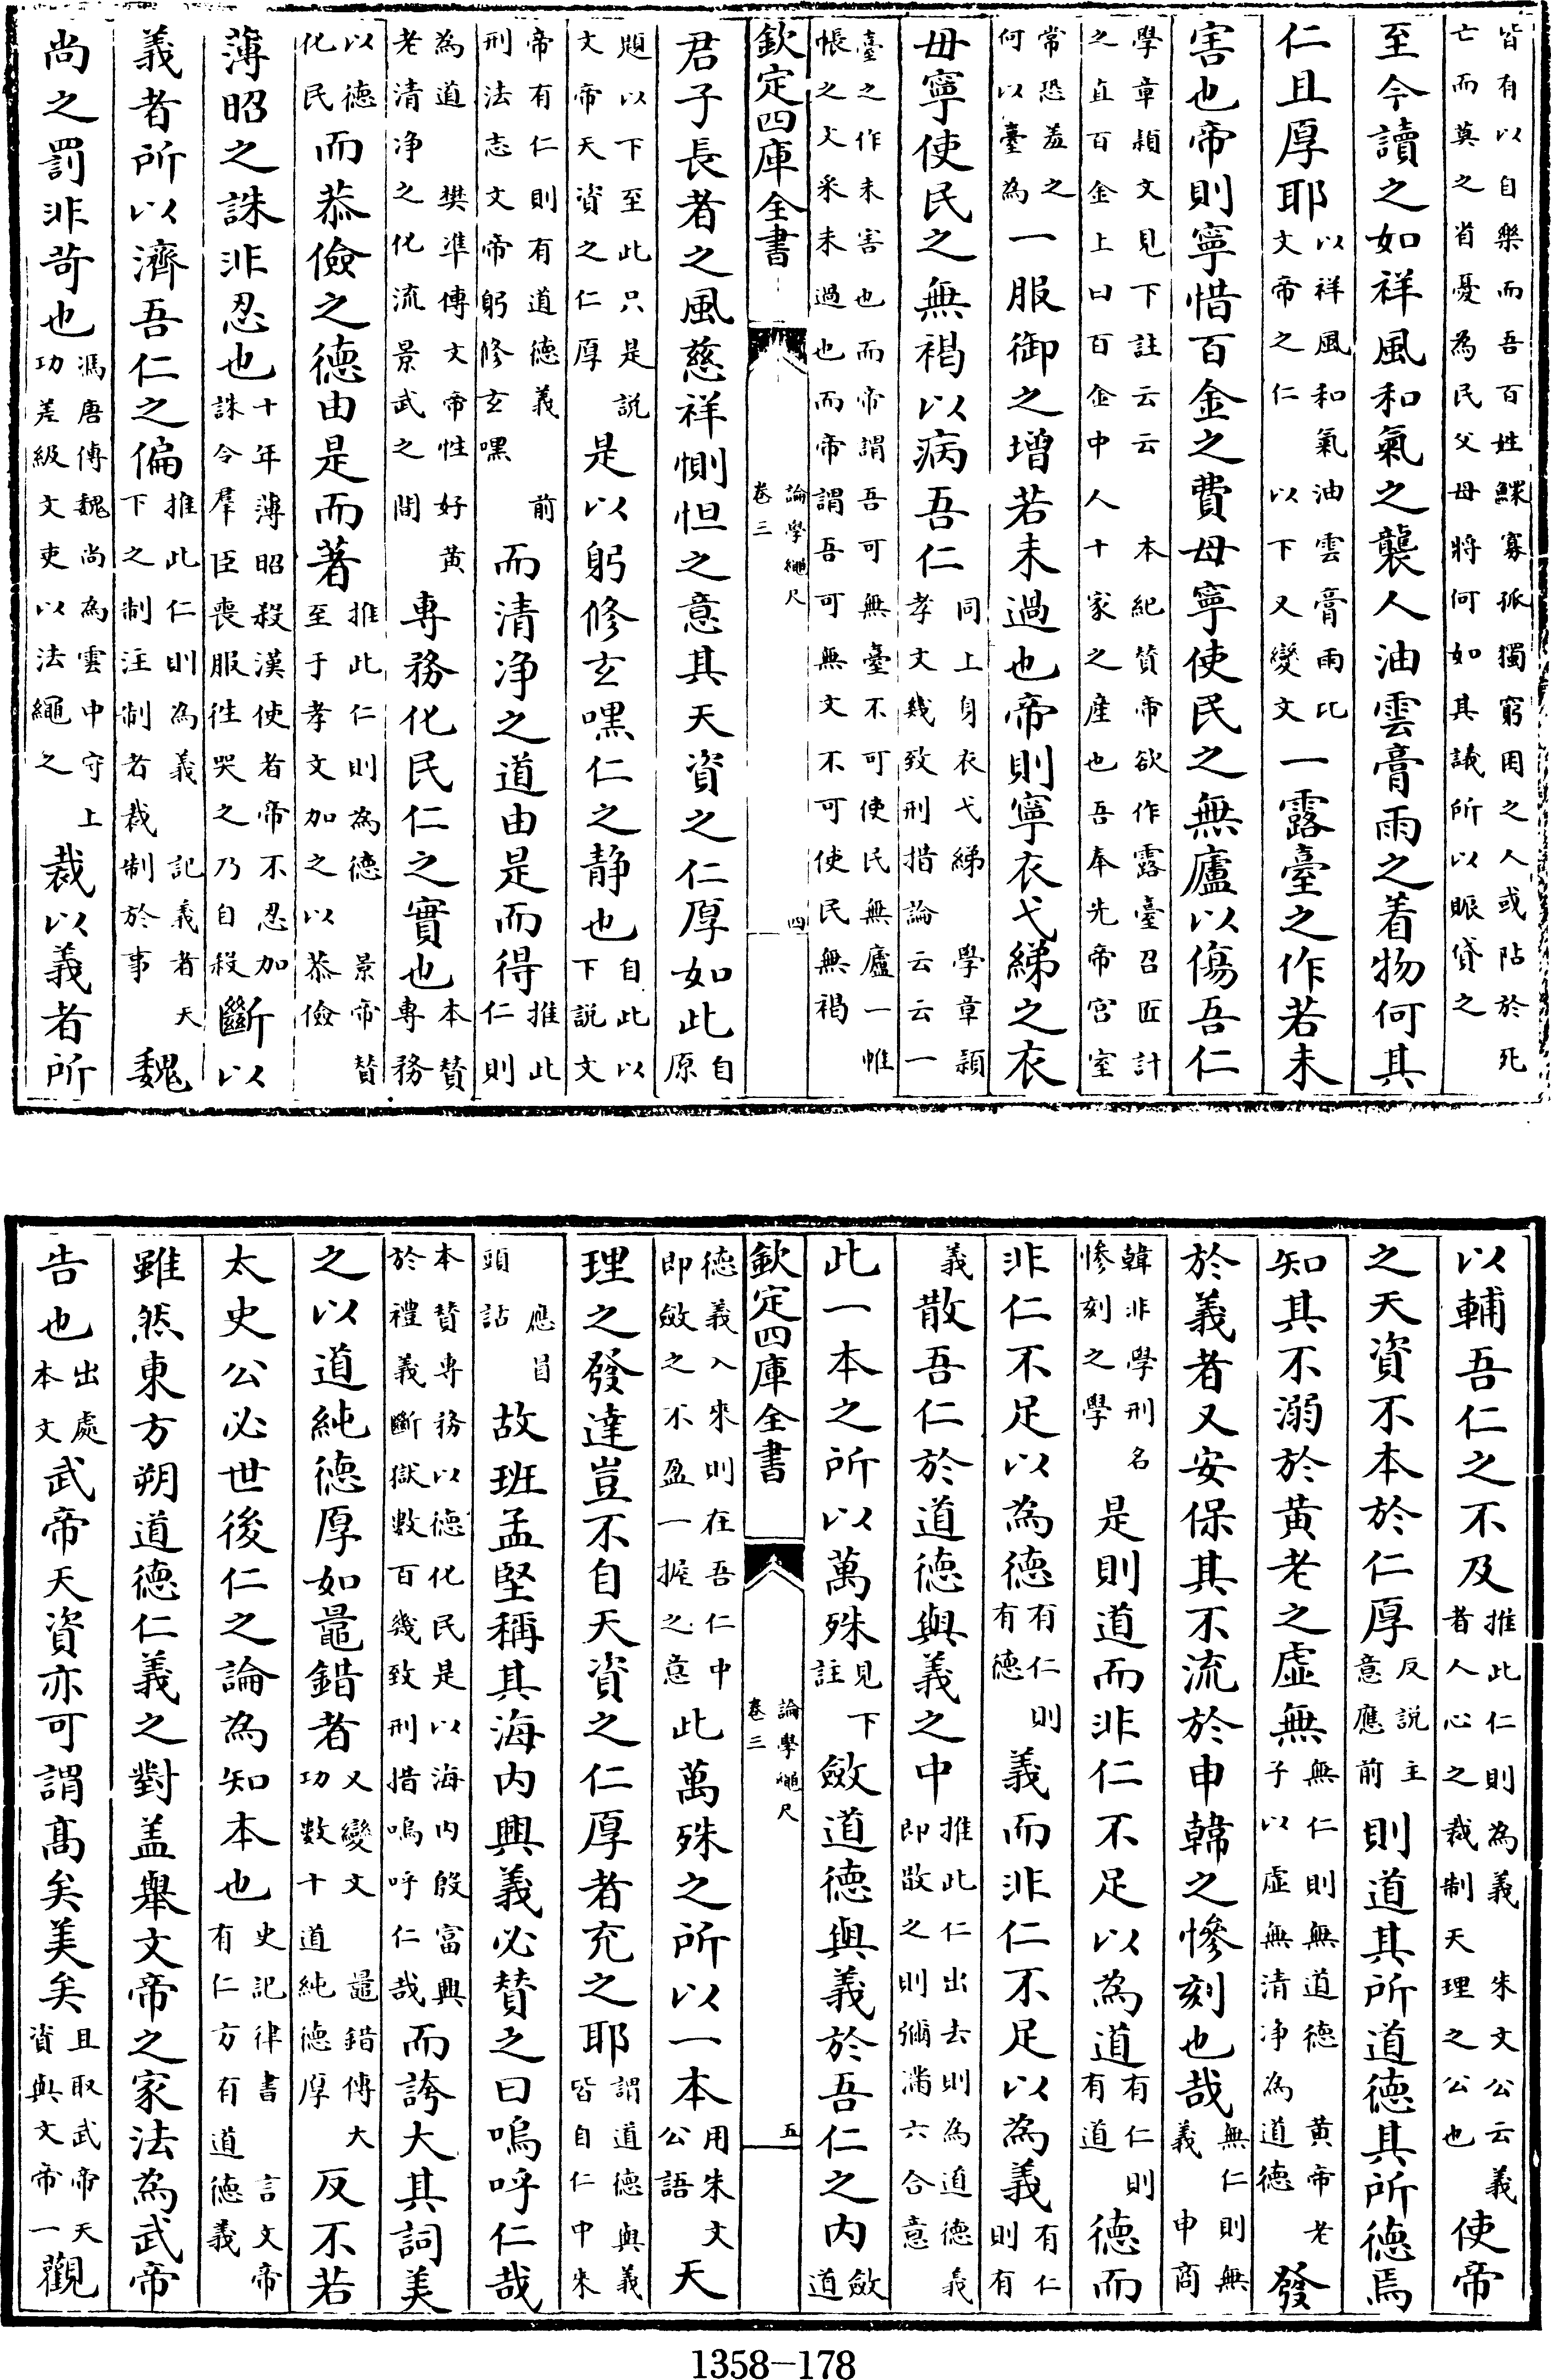 皆有以自樂而吾百姓鰥寡孤獨窮困之人或阽於死亡而莫之省憂為民父母將何如其議所以賑貸之
至今讀之如祥風和氣之襲人油雲膏雨之着物何其
仁且厚耶以祥風和氣油雲膏雨比文帝之仁以下又變文一露臺之作若未
害也帝則寧惜百金之費毋寧使民之無廬以傷吾仁
學章頴文見下註云云本紀贊帝欲作露臺召匠計之直百金上曰百金中人十家之産也吾奉先帝宫室
常恐羞之何以臺為一服御之增若未過也帝則寧衣弋綈之衣
毋寧使民之無褐以病吾仁同上身衣弋綈學章頴孝文幾致刑措論云云一
臺之作未害也而帝謂吾可無臺不可使民無廬一帷帳之文采未過也而帝謂吾可無文不可使民無褐
欽定四庫全書 論學繩尺卷三 四
君子長者之風慈祥惻怛之意其天資之仁厚如此自原
題以下至此只是説文帝天資之仁厚是以躬修玄嘿仁之静也自此以下説文
帝有仁則有道德義刑法志文帝躬修玄嘿前而清净之道由是而得推此仁則
為道樊凖傳文帝性好黄老清净之化流景武之間專務化民仁之實也本賛專務
以德化民而恭儉之德由是而著推此仁則為德景帝賛至于孝文加之以恭儉
薄昭之誅非忍也十年薄昭殺漢使者帝不忍加誅令羣臣喪服徃哭之乃自殺斷以
義者所以濟吾仁之偏推此仁則為義記義者天下之制注制者裁制於事魏
尚之罰非苛也馮唐傳魏尚為雲中守上功差級文吏以法繩之裁以義者所
以輔吾仁之不及推此仁則為義朱文公云義者人心之裁制天理之公也使帝
之天資不本於仁厚反説主意應前則道其所道德其所德焉
知其不溺於黄老之虚無無仁則無道德黄帝老子以虚無清净為道德發
於義者又安保其不流於申韓之慘刻也哉無仁則無義申商
韓非學刑名慘刻之學是則道而非仁不足以為道有仁則有道德而
非仁不足以為德有仁則有德義而非仁不足以為義有仁則有
義散吾仁於道德與義之中推此仁出去則為道德義即散之則彌滿六合意
此一本之所以萬殊見下註斂道德與義於吾仁之内斂道
德義入來則在吾仁中即斂之不盈一握之意此萬殊之所以一本用朱文公語天
欽定四庫全書 論學繩尺卷三 五
理之發達豈不自天資之仁厚者充之耶謂道德與義皆自仁中來
應冒頭話故班孟堅稱其海内興義必賛之曰嗚呼仁哉
本賛專務以德化民是以海内殷富興於禮義斷獄數百幾致刑措嗚呼仁哉而誇大其詞美
之以道純德厚如鼂錯者又變文鼂錯傳大功數十道純德厚反不若
太史公必世後仁之論為知本也史記律書言文帝有仁方有道德義
雖然東方朔道德仁義之對盖舉文帝之家法為武帝
告也出處本文武帝天資亦可謂髙矣美矣且取武帝天資與文帝一觀
1358-178